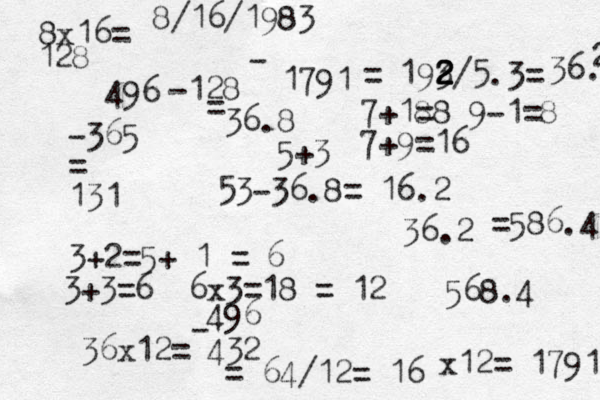 8/16/1983
8x16=
128
-
1791 = 192/5.3=36.2
496-128
=36.8
7+1=8 9-1=8
-365
7+9=16
5+3
=
131
53-36.8= 16.2
36.2 =586.4
3+2=5+ 1 = 6
3+3=6 6x3=18 = 12
568.4
-496
36x12= 432
= 64/12= 16
x12= 1791